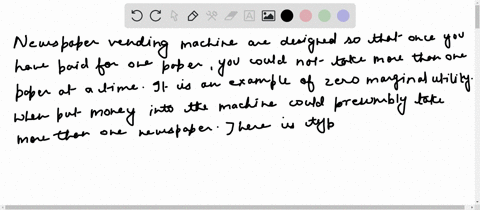 Newspaper vending machine are designed so that once you
have paid for one paper, you could not take more than one
paper at a time. It is an example of zero marginal utility.
when put money into the machine could presumbly take
more than one newspaper. There is typ